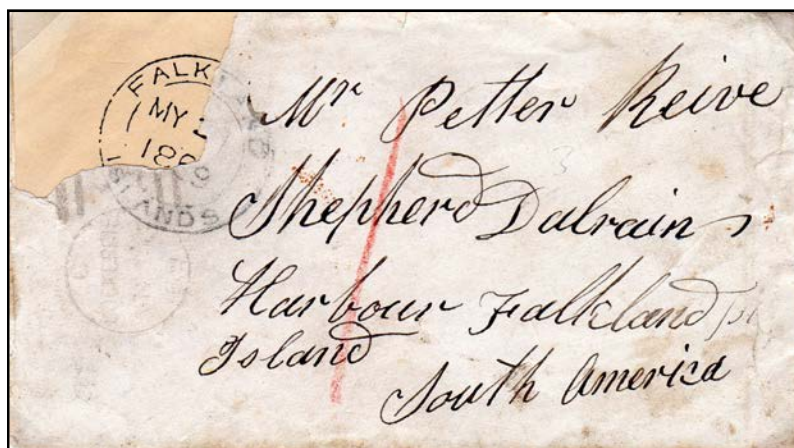 FALKLAND
MY
18
9
ISLANDS
Mr Petter Reive
Shepherd Dalrains
Harbour Falkland
Island
South America